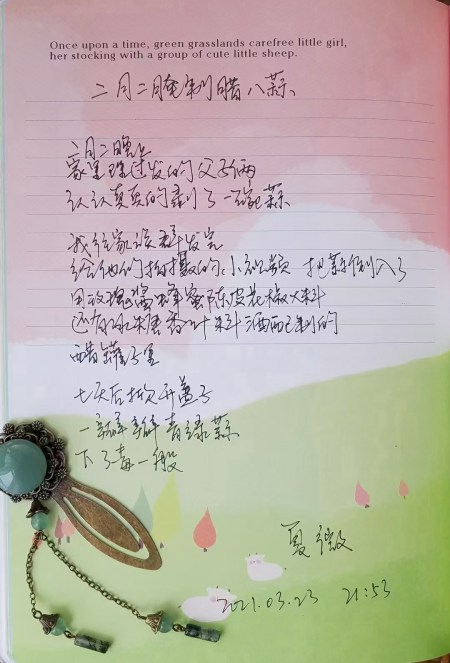 Once upon a time, green grasslands carefree little girl,
her stocking with a group of cute little sheep.
二月二腌制腊八蒜
二月二晚上
家里理过发的父子俩
认认真真的剥了一碗蒜
我往家族群发完
给他们拍摄的小视频 把蒜倒入了
用玫瑰酱蜂蜜陈皮花椒大料
还有冰糖香叶料酒配制的
醋罐子里
七天后打开盖子
一瓣瓣青绿蒜
下了毒一般
夏微
2021.03.23 21:53